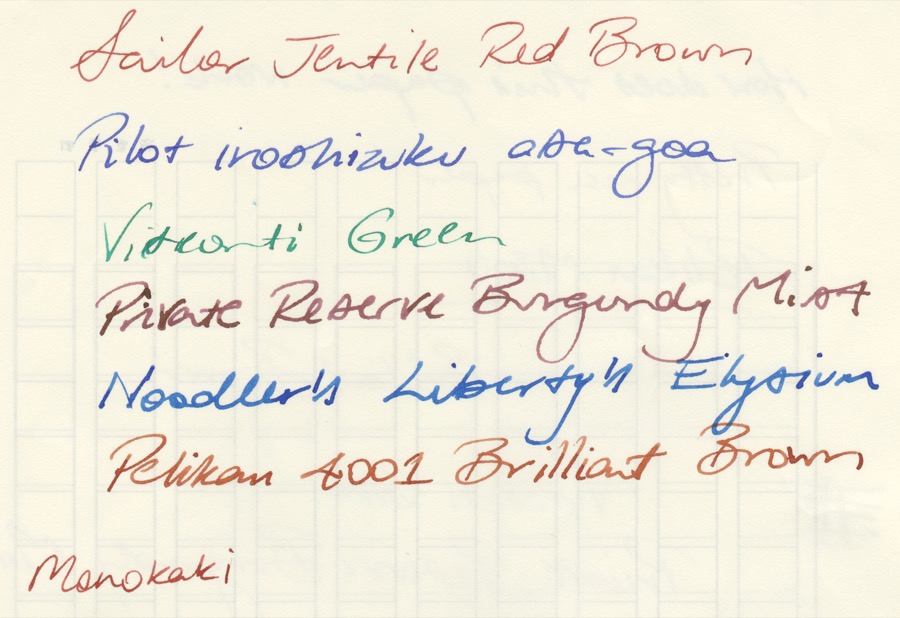 Sailor Jentile Red Brown
Pilot iroshizuku asa-goa
Visconti Green
Private Reserve Burgundy Mist
Noodler's Liberty's Elysium
Pelikan 4001 Brilliant Brown
Monokaki